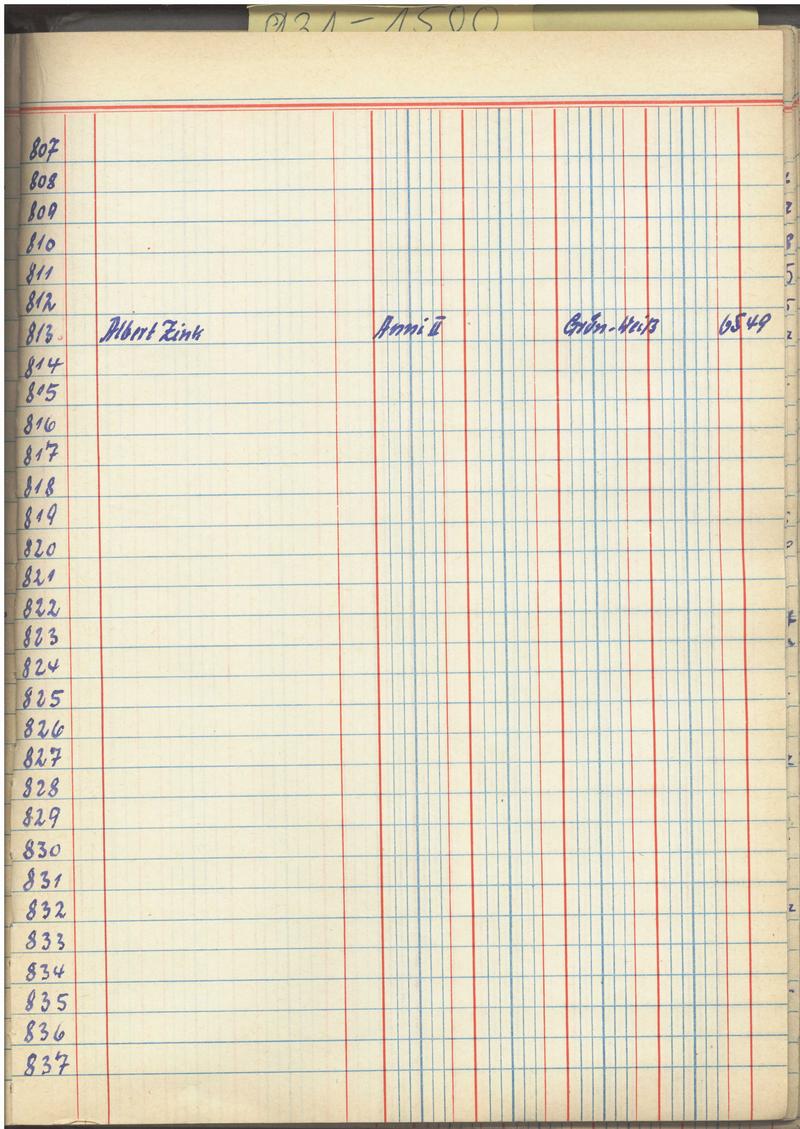 931-1500
807
808
809
810
811
812
813 Albert Zink Anni II Grün-Weiß 6549
814
815
816
817
818
819
820
821
822
823
824
825
826
827
828
829
830
831
832
833
834
835
836
837